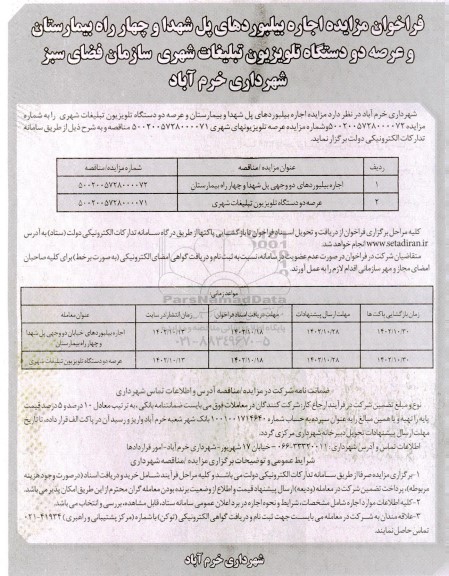 فراخوان مزایده اجاره بیلبوردهای پل شهدا و چهار راه بیمارستان
و عرصه دو دستگاه تلویزیون تبلیغات شهری سازمان فضای سبز
شهرداری خرم آباد
شهرداری خرم آباد در نظر دارد مزایده اجاره بیلبوردهای پل شهدا و بیمارستان و عرصه دو دستگاه تلویزیون تبلیغات شهری را به شماره
مزایده ۵۰۰۲۰۰۵۷۲۸۰۰۰۰۷۲ وشماره مزایده عرصه تلویزیونهای شهری ۵۰۰۲۰۰۵۷۲۸۰۰۰۰۷۱ مناقصه و به شرح ذیل از طریق سامانه
تدارکات الکترونیکی دولت برگزار نماید.
ردیف عنوان مزایده / مناقصه شماره مزایده/مناقصه
۱ اجاره بیلبوردهای دو وجهی پل شهدا و چهار راه بیمارستان ۵۰۰۲۰۰۵۷۲۸۰۰۰۰۷۲
۲ عرصه دو دستگاه تلویزیون تبلیغات شهری ۵۰۰۲۰۰۵۷۲۸۰۰۰۰۷۱
کلیه مراحل برگزاری فراخوان از دریافت و تحویل اسناد فراخوان تا بازگشایی پاکتها از طریق درگاه سامانه تدارکات الکترونیکی دولت (ستاد) به آدرس
www.setadiran.ir انجام خواهد شد.
متقاضیان شرکت در فراخوان در صورت عدم عضویت در سامانه، نسبت به ثبت نام و دریافت گواهی امضای الکترونیکی (به صورت برخط) برای کلیه صاحبان
امضای مجاز و مهر سازمانی اقدام لازم را به عمل آورند.
مواعد زمانی
زمان بازگشایی پاکت ها مهلت ارسال پیشنهادات مهلت دریافت اسناد فراخوان زمان انتشار در سایت عنوان معامله
۱۴۰۲/۱۰/۳۰ ۱۴۰۲/۱۰/۲۸ ۱۴۰۲/۱۰/۱۸ ۱۴۰۲/۱۰/۱۳ اجاره بیلبوردهای خیابان دو وجهی پل شهدا
و چهار راه بیمارستان
۱۴۰۲/۱۰/۳۰ ۱۴۰۲/۱۰/۲۸ ۱۴۰۲/۱۰/۱۸ ۱۴۰۲/۱۰/۱۳ عرصه دو دستگاه تلویزیون تبلیغات شهری
ParsNamadData
۰۲۱-۸۸۳۴۹۶۷۰-۵
ضمانت نامه شرکت در مزایده/مناقصه آدرس و اطلاعات تماس شهرداری
نوع و مبلغ تضمین شرکت در فرآیند ارجاع کار: شرکت کنندگان در معاملات فوق می بایست ضمانتنامه بانکی، به ترتیب معادل ۱۰ درصد و ۵ درصد قیمت
پایه را تهیه و یا همین مبالغ را به عنوان سپرده به حساب ۱۰۰۱۰۰۱۷۱۴۶۴۰ بانک شهر شعبه خرم آباد واریز و رسید آن در پاکت الف قرار داده، تا تاریخ
مهلت ارسال پیشنهادات تحویل دبیرخانه شهرداری مرکزی گردد.
اطلاعات تماس و آدرس شهرداری: ۰۶۶-۳۳۳۲۰۰۱۱ - خیابان ۱۷ شهریور - شهرداری خرم آباد - امور قراردادها
شرایط عمومی و توضیحات برگزاری مزایده / مناقصه شهرداری
۱- برگزاری مزایده صرفا از طریق سامانه تدارکات الکترونیکی دولت می باشد و کلیه مراحل فرآیند شامل خرید و دریافت اسناد (در صورت وجود هزینه
مربوطه)، پرداخت تضمین شرکت در معامله (ودیعه) ارسال پیشنهاد قیمت و اطلاع از وضعیت برنده بودن معامله گران محترم از این طریق امکان پذیر می باشد.
۲- کلیه اطلاعات موارد اجاره شامل مشخصات، شرایط و نحوه اجاره در برد اعلان عمومی سامانه ستاد، قابل مشاهده، بررسی و انتخاب می باشد.
۳- علاقه مندان به شرکت در معامله می بایست جهت ثبت نام و دریافت گواهی الکترونیکی (توکن) با شماره (مرکز پشتیبانی و راهبری) ۴۱۹۳۴-۰۲۱
تماس حاصل نمایند.
شهرداری خرم آباد